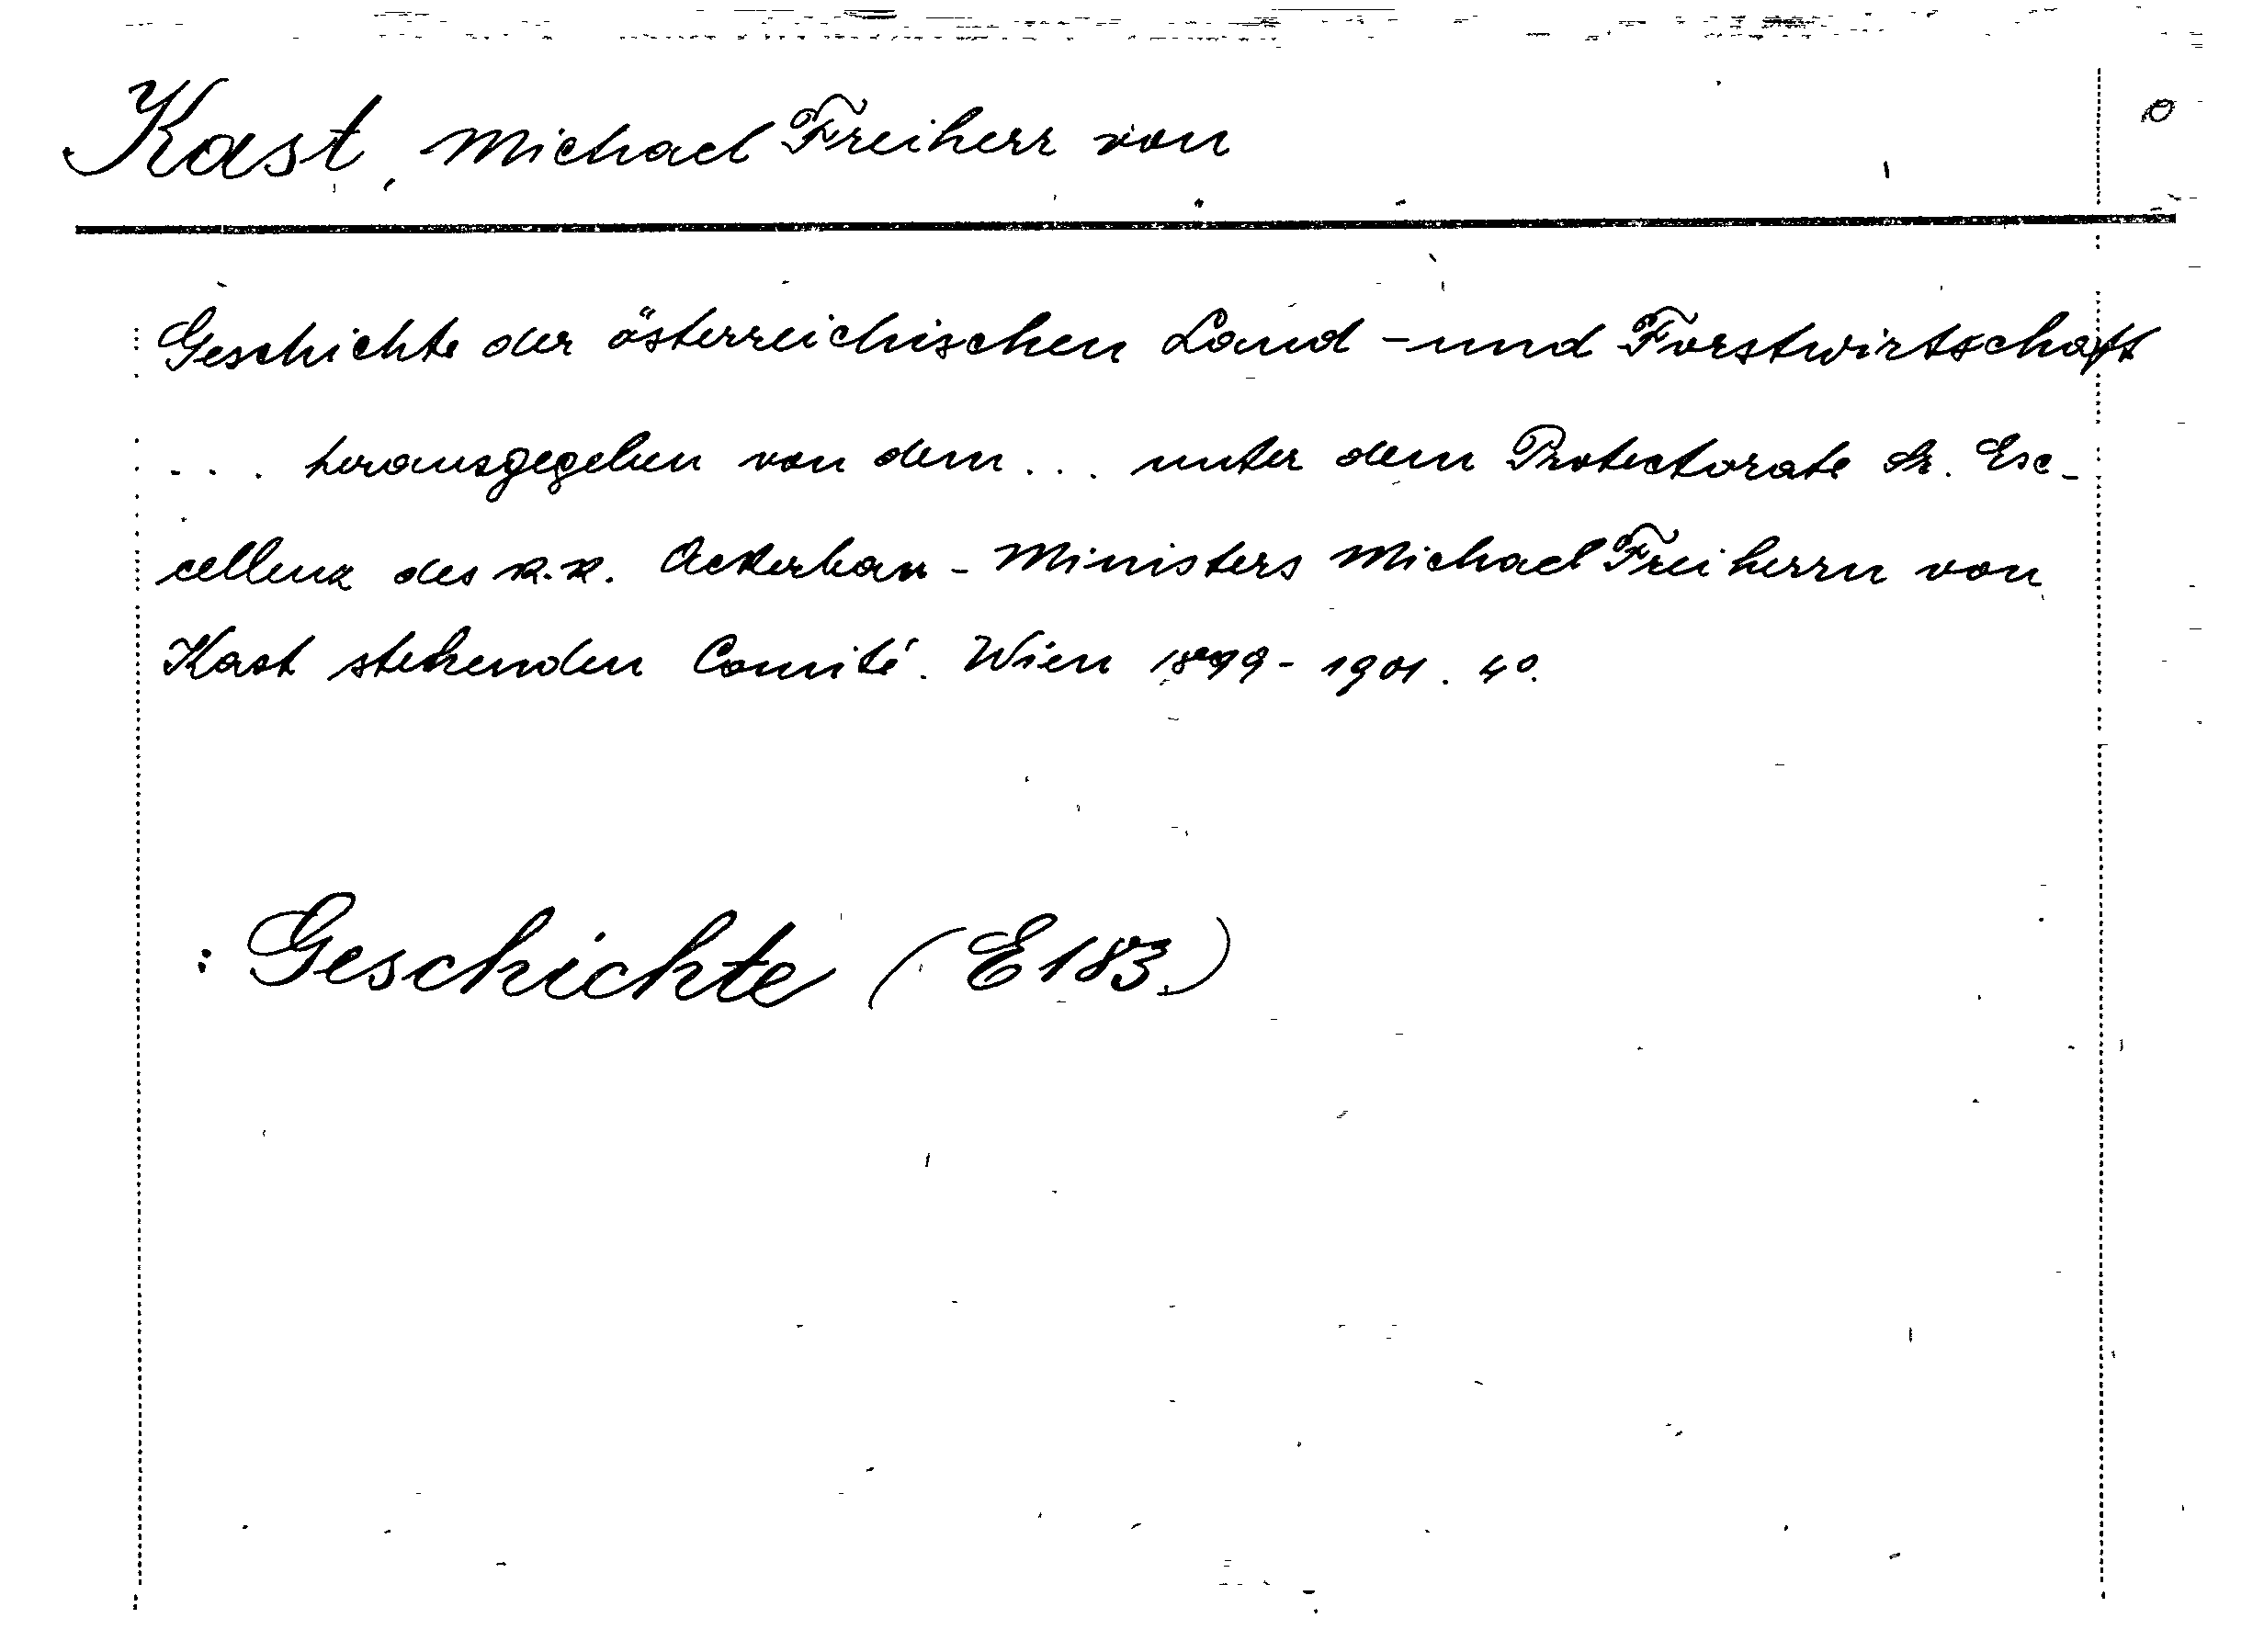 Kast, Michael Freiherr von
Geschichte der österreichischen Land - und Forstwirtschaft
... herausgegeben von dem ... unter dem Protectorate Sr. Exc-
cellenz des k.k. Ackerbau - Ministers Michael Freiherrn von
Kast stehenden Comité. Wien 1899 - 1901. 4°.
: Geschichte (E183)